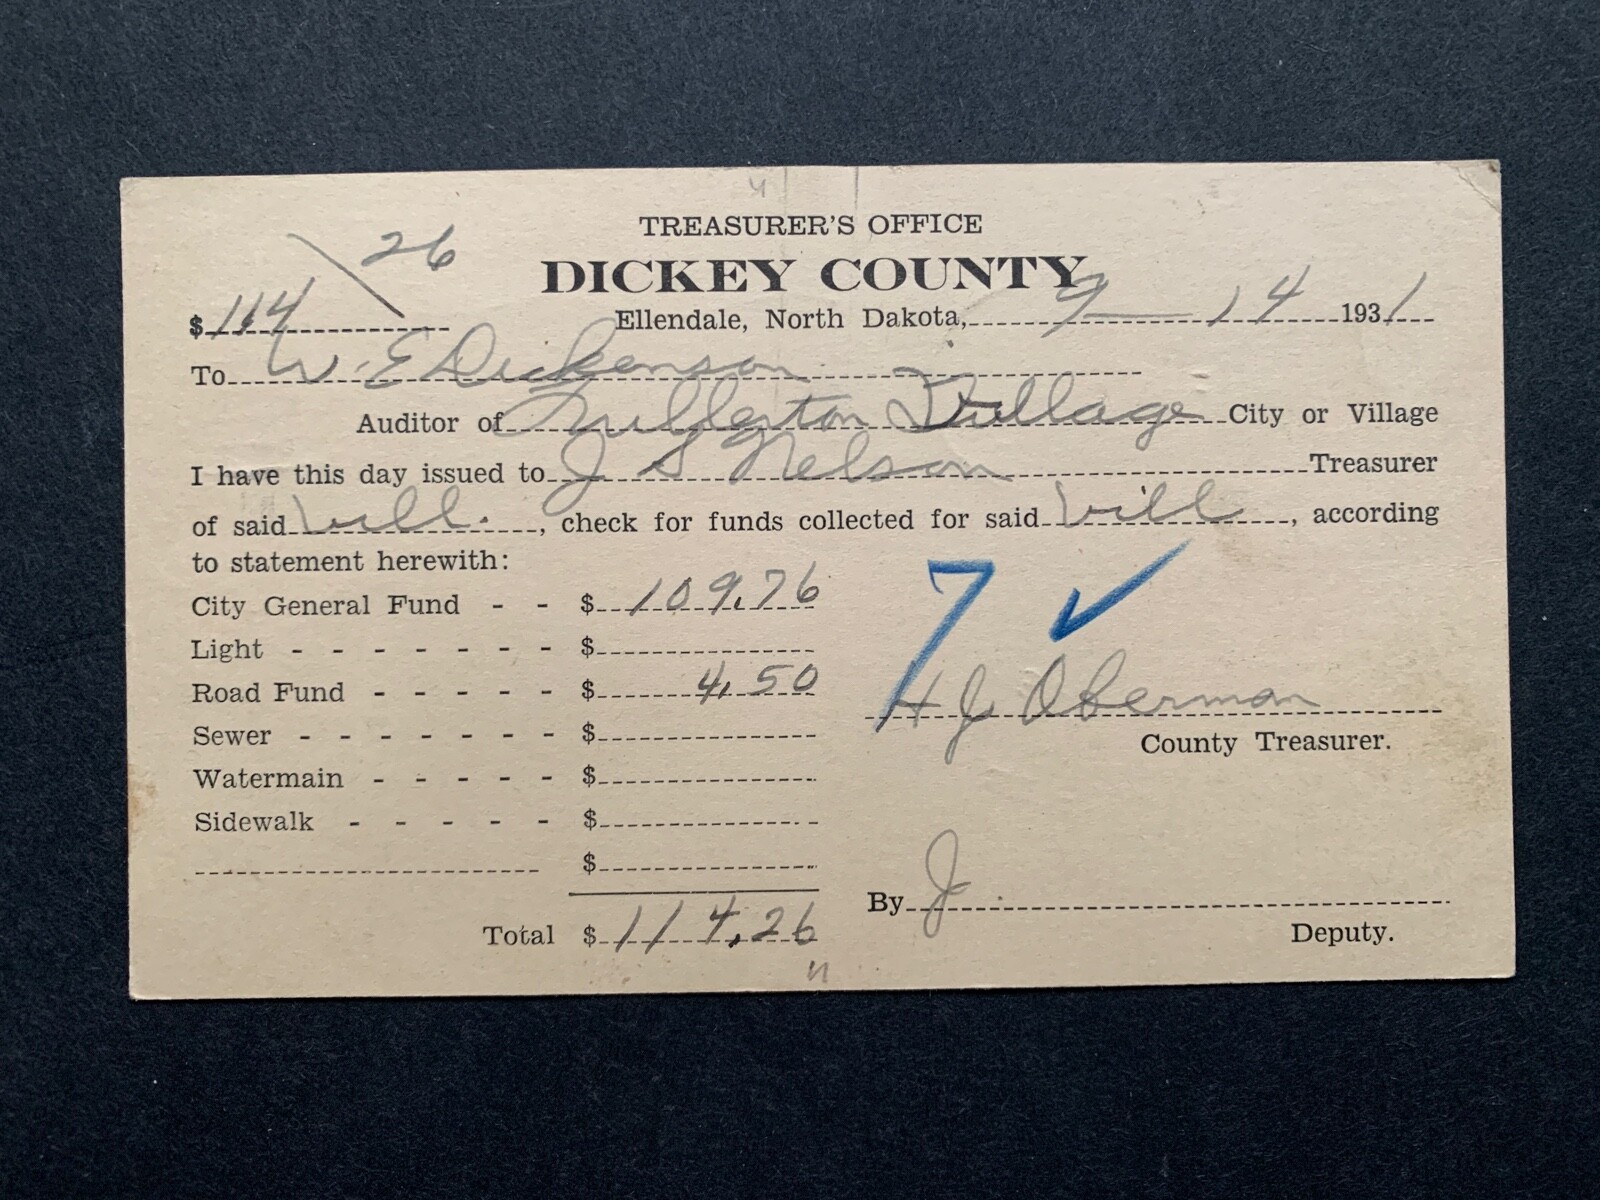 TREASURER'S OFFICE
DICKEY COUNTY
$114 26
Ellendale, North Dakota, 9 - 14 1931
To W. E Dickenson
Auditor of Fullerton Village City or Village
I have this day issued to J S Nelson Treasurer
of said vill., check for funds collected for said vill, according
to statement herewith:
City General Fund - - $ 109.76
Light - - - - - - - $
Road Fund - - - - - $ 4.50
Sewer - - - - - - - $
Watermain - - - - - $
Sidewalk - - - - - $
$
Total $ 114.26
7 ✓
H J Oberman
County Treasurer.
By J
Deputy.